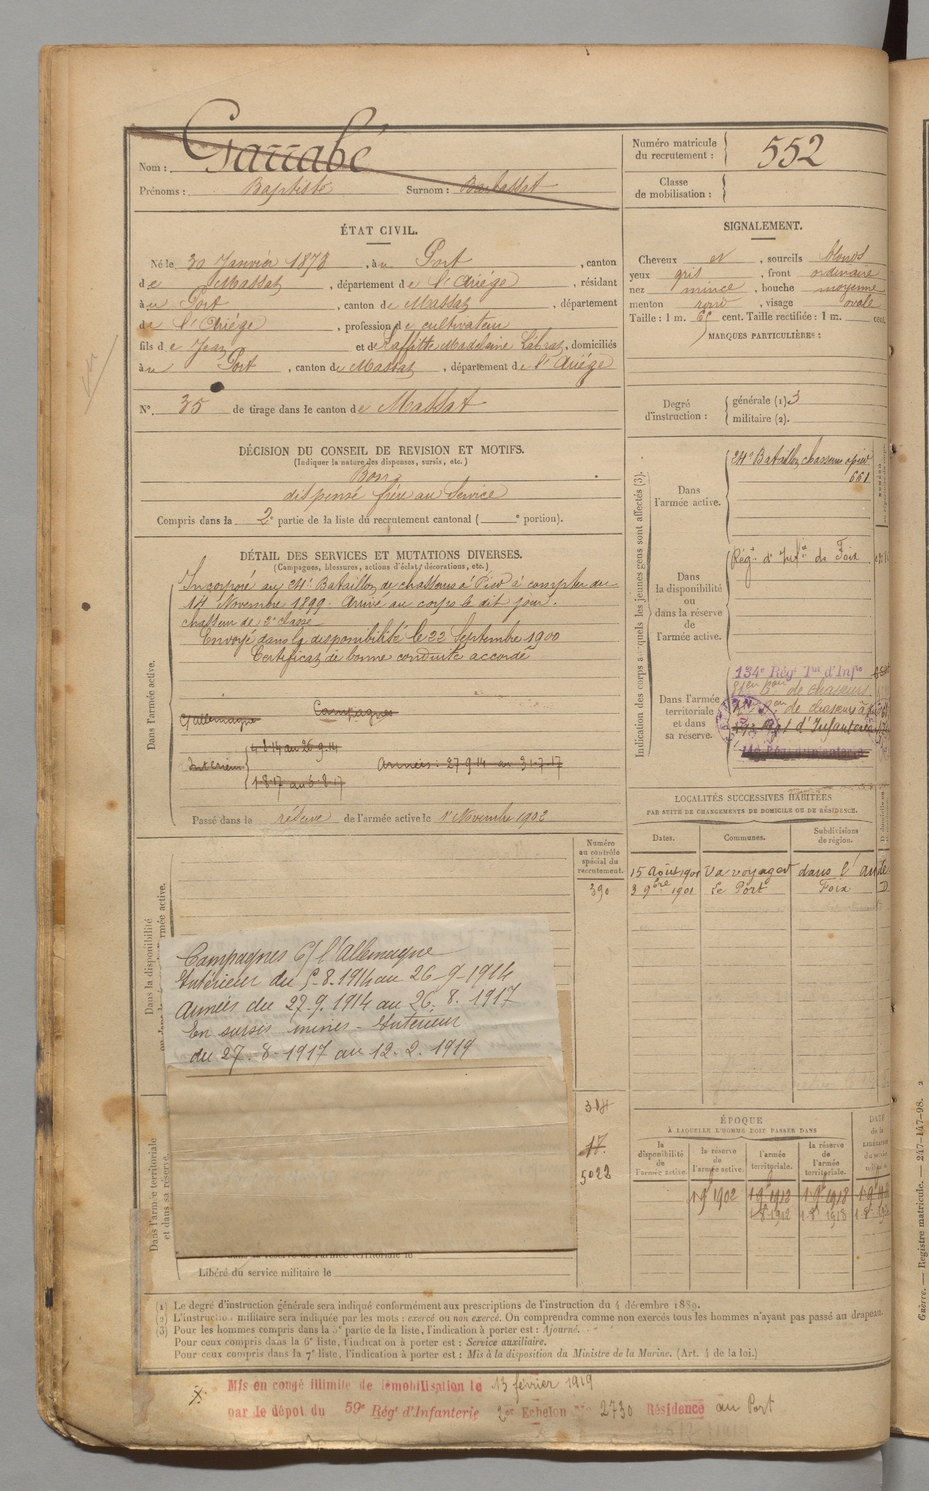 Nom : Garrabé
Prénoms : Baptiste Surnom : Barbassat
Numéro matricule du recrutement : 552
Classe de mobilisation :
ÉTAT CIVIL.
Né le 30 Janvier 1878, à u Port, canton
de Massat, département de l'Ariège, résidant
à u Port, canton de Massat, département
de l'Ariège, profession de cultivateur
fils de Jean et de Laffitte Madeleine, domiciliés
à u Port, canton de Massat, département de l'Ariège
N° 35 de tirage dans le canton de Massat
SIGNALEMENT.
Cheveux et, sourcils blonds
yeux gris, front ordinaire
nez mince, bouche moyenne
menton rond, visage ovale
Taille : 1 m. cent. Taille rectifiée : 1 m. cent.
MARQUES PARTICULIÈRES :
Degré d'instruction : générale (1). 3
militaire (2).
DÉCISION DU CONSEIL DE REVISION ET MOTIFS.
(Indiquer la nature des dispenses, sursis, etc.)
Bon
dispensé frère au Service
Compris dans la 2e partie de la liste du recrutement cantonal ( e portion).
DÉTAIL DES SERVICES ET MUTATIONS DIVERSES.
(Campagnes, blessures, actions d'éclat, décorations, etc.)
Dans l'armée active.
Incorporé au 24e Bataillon de chasseurs à Pied à compter du
14 Novembre 1899. Arrivé au corps le dit jour.
chasseur de 2e classe
Envoyé dans la disponibilité le 22 Septembre 1900
Certificat de bonne conduite accordé
C/ allemagne Campagnes
Intérieur 4-8-14 au 26-9-14
Armées : 27-9-14 au 31-7-17
1-8-17 au 6-8-17
Passé dans la réserve de l'armée active le 1er Novembre 1902
Indication des corps auxquels les jeunes gens sont affectés (3).
Dans l'armée active.
24e Bataillon chasseurs à pied
661
Dans la disponibilité ou dans la réserve de l'armée active.
Régt d'Infie de Foix
Dans l'armée territoriale et dans sa réserve.
134e Régt Tal d'Infie
de chasseurs
de chasseurs à
d'Infanterie
LOCALITÉS SUCCESSIVES HABITÉES
PAR SUITE DE CHANGEMENTS DE DOMICILE OU DE RÉSIDENCE.
Dates. Communes. Subdivisions de région.
15 Août 1901 Va voyager dans l'Aude
3 9bre 1901 Le Port Foix
Numéro au contrôle spécial du recrutement.
390
Dans la disponibilité
Campagnes C/ l'Allemagne
Intérieur du 5-8-1914 au 26-9-1914
Armées du 27-9-1914 au 26.8.1917
En sursis mines - Intérieur
du 27-8-1917 au 12.2.1919
314
17.
5022
ÉPOQUE
À LAQUELLE L'HOMME DOIT PASSER DANS
la disponibilité de l'armée active. la réserve de l'armée active. l'armée territoriale. la réserve de l'armée territoriale.
Dans l'armée territoriale et dans sa réserve.
Libéré du service militaire le
(1) Le degré d'instruction générale sera indiqué conformément aux prescriptions de l'instruction du 4 décembre 1889.
(2) L'instruction militaire sera indiquée par les mots : exercé ou non exercé. On comprendra comme non exercés tous les hommes n'ayant pas passé au drapeau.
(3) Pour les hommes compris dans la 5e partie de la liste, l'indication à porter est : Ajourné.
Pour ceux compris dans la 6e liste, l'indication à porter est : Service auxiliaire.
Pour ceux compris dans la 7e liste, l'indication à porter est : Mis à la disposition du Ministre de la Marine. (Art. 4 de la loi.)
Mis en congé illimité de démobilisation le 13 février 1919
par le dépôt du 59e Régt d'Infanterie 2e Echelon No 2730 Résidence au Port
Guerre. — Registre matricule. — 247-147-98.